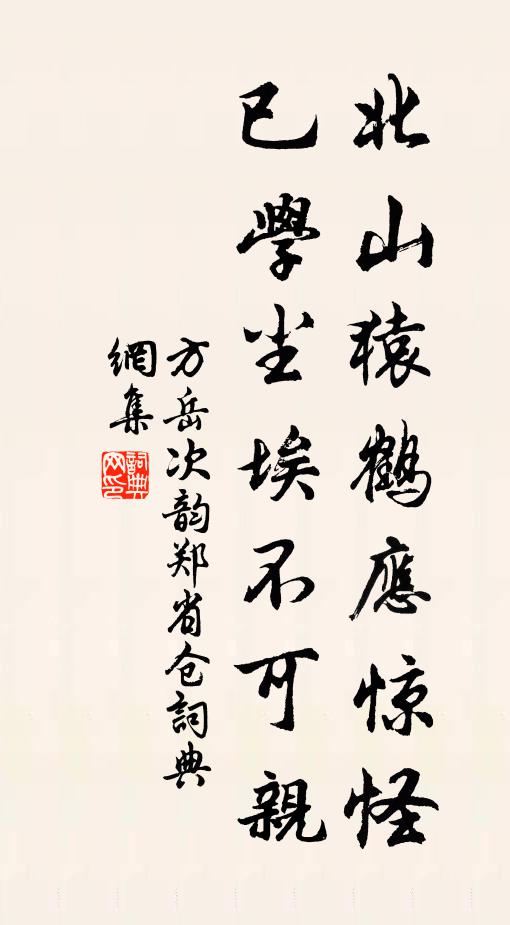 北山猿鹤應惊怪
已學尘埃不可親
方岳次韵郑省仓詞典
網集
詞典网印